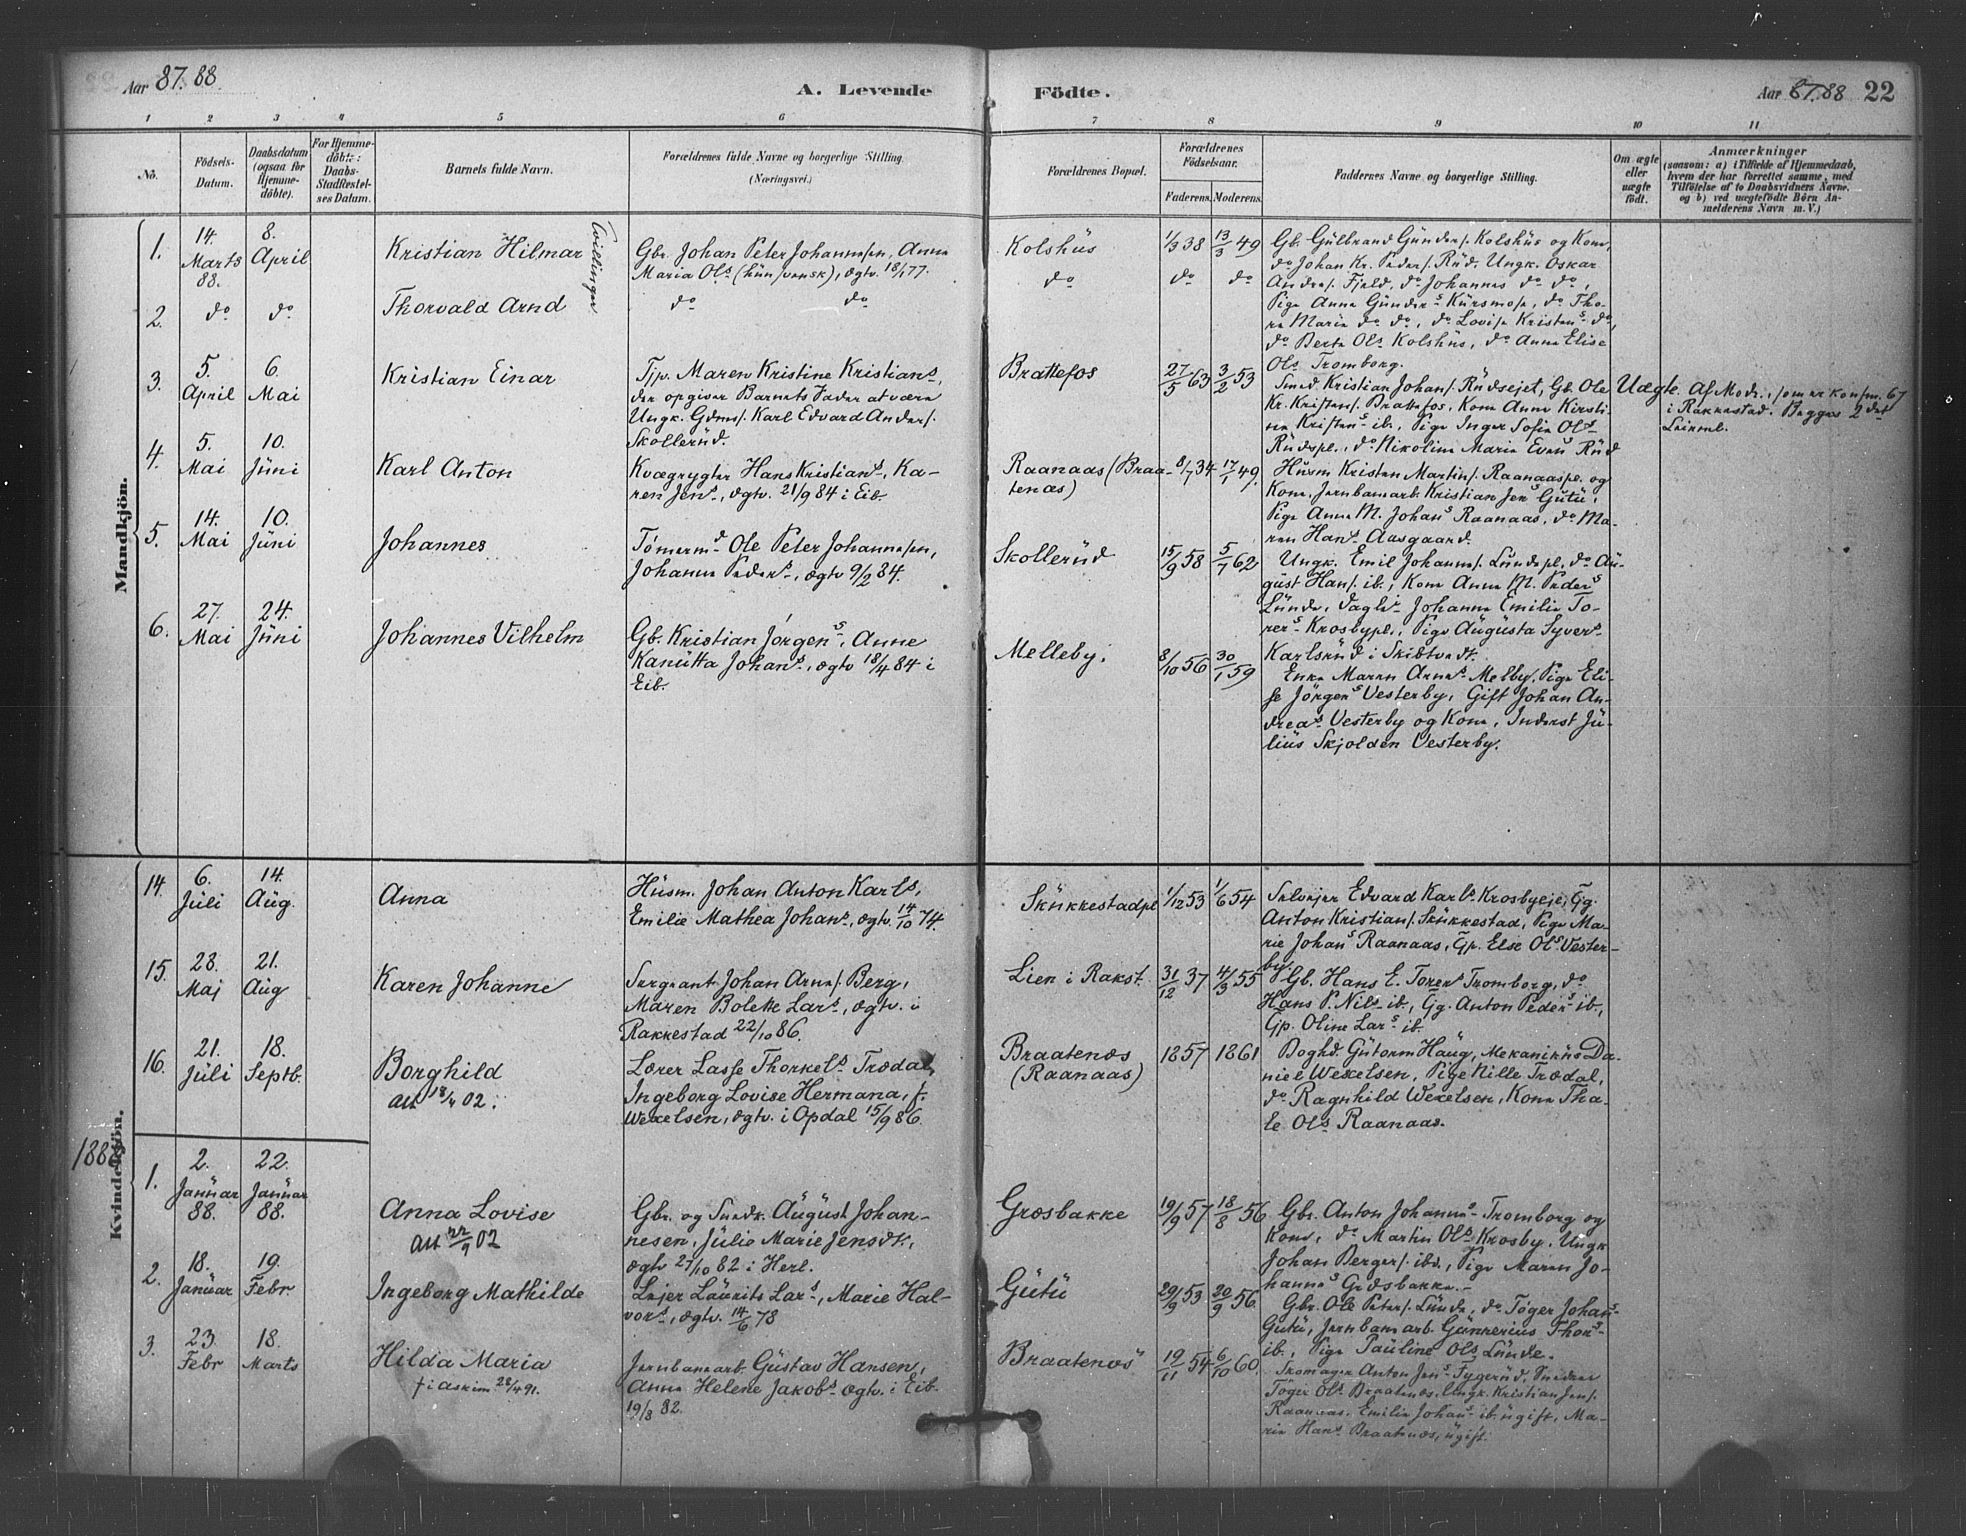 Aar 87.88.
A. Levende Födte.
Aar 87.88 22
1 2 3 4 5 6 7 8 9 10 11
No.
Födsels-Datum.
Daabsdatum (ogsaa for Hjemmedöbte).
For Hjemmedöbte: Daabs-Stadfæstelses Datum.
Barnets fulde Navn.
Forældrenes fulde Navne og borgerlige Stilling. (Næringsvei.)
Forældrenes Bopæl.
Forældrenes Födselsaar.
Faderens. Moderens.
Faddernes Navne og borgerlige Stilling.
Om ægte eller uægte født.
Anmærkninger
(saasom: a) i Tilfælde af Hjemmedaab, hvem der har forrettet samme, med Tilföielse af to Daabsvidners Navne, og b) ved uægtefödte Börn Anmelderens Navn m. V.)
Mandkjön.
1. 14. Marts 88. 8. April
Kristian Hilmar
Tvillinger
Gbr. Johan Peter Johannesen, Anna
Maria Ols. (hün svensk), ægtv. 18/1 77.
Kolshüs
1/9 38 13/3 49
Gb. Gülbrand Günders. Kolshüs og Kone,
do Johan Kr. Peders. Rüd, Ungk. Oskar
Anders. Fjeld, do Johannes do do,
Pige Anna Günders Kürsmose, do Tho-
ra Maria do do, do Lovise Kristens do,
do Berta Ols Kolshüs, do Anna Elise
Ols Tromborg.
2. do do
Thorvald Arnd
do do
do
do do
3. 5. April 6. Mai
Kristian Einar
Tjp. Maren Kristine Kristians,
der opgiver Barnets Fader at være
Ungk. Gdms. Karl Edvard Anders.
Skollerüd.
Brattefos
27/5 63 3/2 53
Smed Kristian Johans. Rüdsejet, Gb. Ole
Kr. Kristens. Brattefos, Kone Anne Kirsti-
ne Kristens ib., Pige Inger Sofie Ols
Rüdspl., do Nikoline Maria Evens Rüd
Uægte.
Af Modr., som er konfm. 67
i Rakkestad. Begges 2det
Leierml.
4. 5. Mai 10. Jüni
Karl Anton
Kvægrygter Hans Kristians, Ka-
ren Jens, ægtv. 21/9 84 i Eib.
Raanaas (Braa-
tenæs)
8/7 34 17/1 49.
Husm. Kristen Martins. Raanaaspl. og
Kone, Jernbanearb. Kristian Jens Gütü,
Pige Anna M. Johans Raanaas, do Ma-
ren Hans Aasgaard.
5. 14. Mai 10. Jüni
Johannes
Tømmermd Ole Peter Johannesen,
Johanne Peders, ægtv 9/2 84.
Skollerüd
15/9 58 5/7 62
Ungk. Emil Johannes. Lündepl., do Aü-
güst Hans. ib., Kone Anna M. Peders
Lünde, Johanne Emilie To-
rers Krosbypl., Pige Aügüsta Syvers
Karlsrüd i Skibtvedt.
6. 27. Mai 24. Jüni
Johannes Vilhelm
Gb. Kristian Jørgens, Anne
Kanütta Johans, ægtv 18/4 84 i
Eib.
Melleby.
8/10 56 30/1 59
Enke Maren Arnes Melby, Pige Eli-
se Jörgens Vesterby, Gift Johan An-
dreas Vesterby og Kone, Inderst Jü-
liüs Skjolden Vesterby.
Kvindekjön.
14. 6. Jüli 14. Aüg.
Anna
Hüsm. Johan Anton Karls,
Emilie Mathea Johans, ægtv. 14/10 74.
Skükkestadpl
1/12 53 1/6 54
Selvejer Edvard Karls Krosbyeje, Gg.
Anton Kristians. Skükkestad, Pige Ma-
rie Johans Raanaas, Gp. Else Ols Vester-
by.
15. 28. Maj 21. Aüg
Karen Johanne
Sergeant Johan Arnes. Berg,
Maren Bolette Lars, ægtv. i
Rakkestad 22/10 86.
Lien i Rakst.
31/12 37 4/3 55
Gb. Hans E. Torers Tromborg, do
Hans P. Nils ib., Gg. Anton Peders ib.,
Gp. Oline Lars ib.
16. 21. Jüli 18. Septb.
Borghild
att 18/4 02.
Lærer Lasse Thorkels Trædal,
Ingeborg Lovise Hermana, f.
Wexelsen, ægtv. i Opdal 15/9 86.
Braatenæs
(Raanaas)
1857 1861
Boghd. Gütorm Haüg, Mekanikus Da-
niel Wexelsen, Pige Nille Trædal,
do Ragnhild Wexelsen, Kone Tha-
le Ols Raanaas.
1888
1. 2. Janüar 88. 22. Janüar 88.
Anna Lovise
att 22/9 02
Gbr. og Snedk. Aügüst Johan-
nesen, Jülie Marie Jensdt.,
ægtv 27/10 82 i Herl.
Græsbakke
19/9 57 18/8 56
Gbr. Anton Johanns Tromborg og
Kone, do Martin Ols Krosby, Ungk
Johan Bergers. ibd., Pige Maren Jo-
hannes Græsbakke.
2. 18. Janüar 19. Febr
Ingeborg Mathilde
Lejer Laürits Lars, Marie Hal-
vors, ægtv. 14/6 78
Gütü
29/9 53 20/9 56.
Gbr. Ole Peters. Lünde, do Töger Johans
Gütü, Jernbanearb. Günnerius Thors
ib., Pige Pauline Ols Lünde.
3. 23. Febr 18. Marts
Hilda Maria
† i Askim 28/4 91.
Jernbanearb. Güstav Hansen,
Anna Helene Jakobs ægtv. i Eib.
19/8 82.
Braatenæs
19/11 54 6/10 60.
Skomager Anton Jens Tygerüd, Snedker
Töger Ols Braatenæs, Ungk. Kristian Jens.
Raanaas, Emilie Johans ib. ügift, Ma-
rie Hans Braatenæs, ügift.